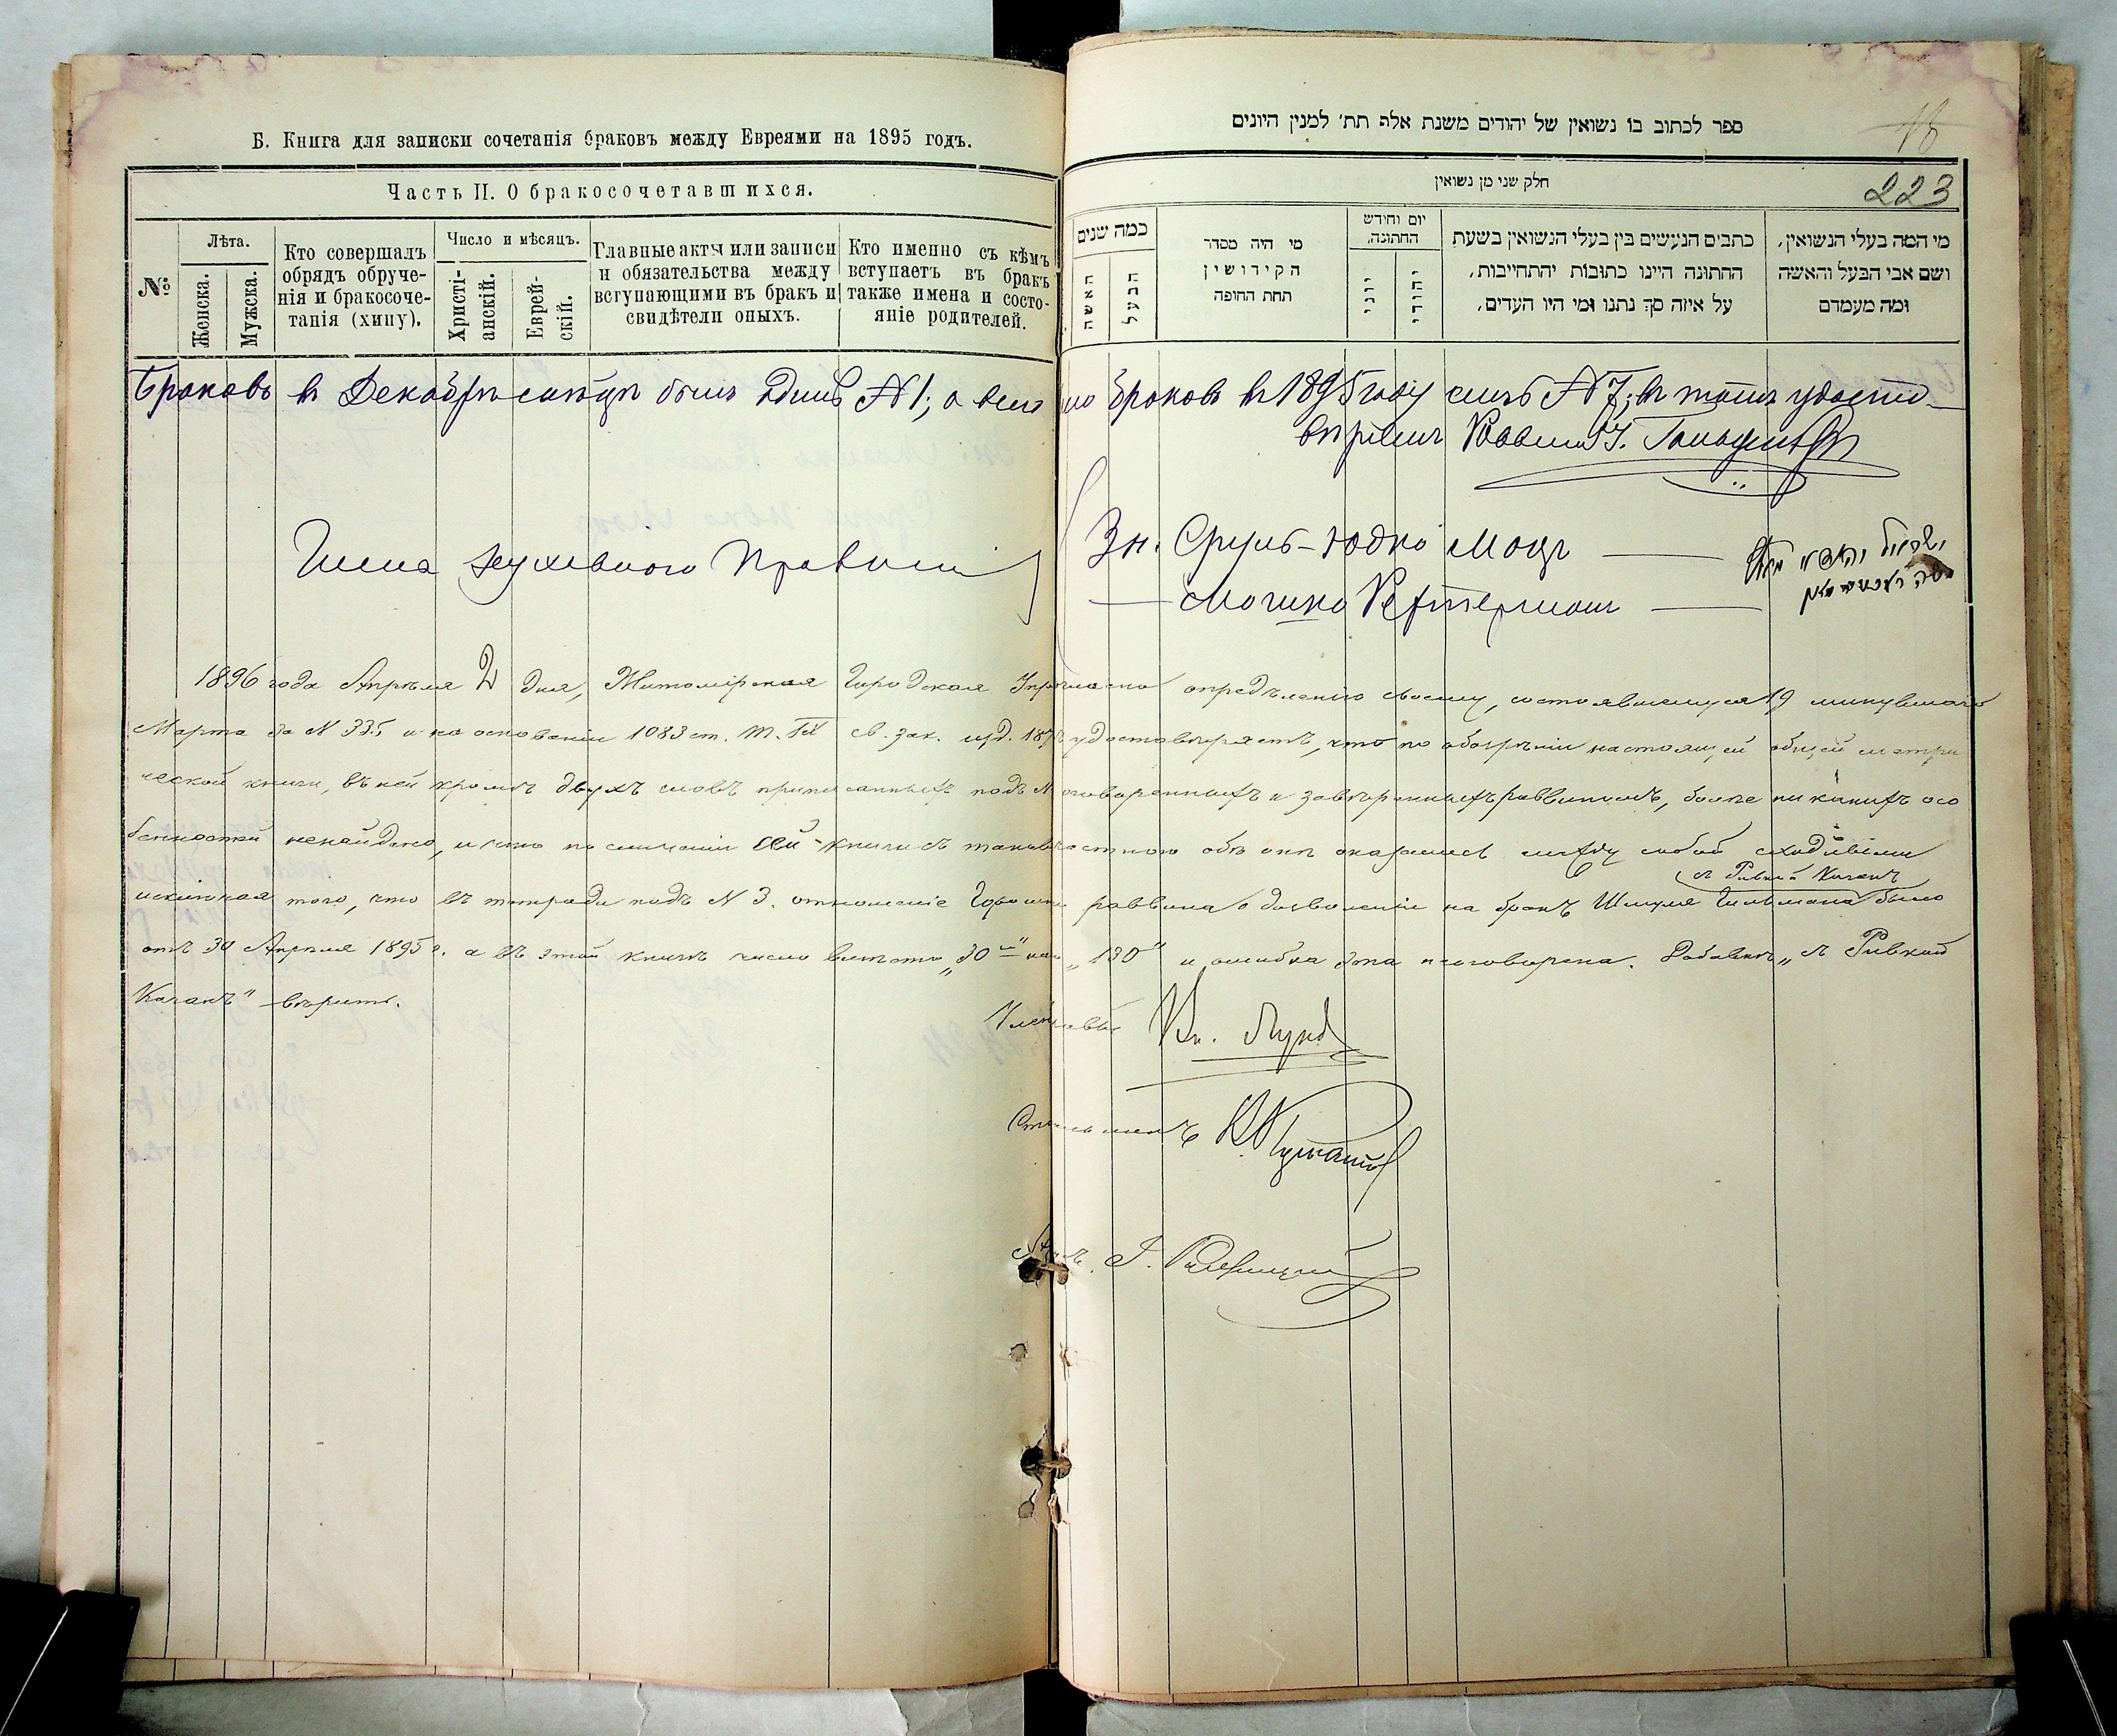 Б. Книга для записки сочетанія браковъ между Евреями на 1895 годъ.
Часть II. О бракосочетавшихся.
№
Лѣта.
Женска.
Мужска.
Кто совершалъ
обрядъ обруче-
нія и бракосоче-
танія (хипу).
Число и мѣсяцъ.
Христі-
анскій.
Еврей-
скій.
Главные акты или записи
и обязательства между
вступающими въ бракъ и
свидѣтели оныхъ.
Кто именно съ кѣмъ
вступаетъ въ бракъ
также имена и состо-
яніе родителей.
ספר לכתוב בו נשואין של יהודים משנת אלף תת׳ למנין היונים
18
חלק שני מן נשואין
223
מי המה בעלי הנשואין,
ושם אבי הבעל והאשה
ומה מעמדם
כתבים הנעשים בין בעלי הנשואין בשעת
החתונה היינו כתובות והתחייבות,
על איזה סך נתנו ומי היו העדים,
יום וחודש
החתונה,
יהודי
יוני
מי היה מסדר
הקידושין
תחת החופה
כמה שנים
הבעל
האשה
Браковъ въ Декабрѣ мѣсяцѣ былъ одинъ №1; а всего браковъ въ 1895 году семь №7; въ томъ удосто-
вѣряемъ Раввинъ
Члена духовного Правленія
Зн. Сруль-Юдко Моцъ
Мошко
1896 года Апрѣля 2 дня, Житомірская Городская Управа согласно опредѣленію своему, состоявшемуся 19 минувшаго
Марта за № 335 и на основаніи 1083 ст. т. IX св. зак. изд. 187 удостовѣряетъ, что по обозрѣніи настоящей общей метри
ческой книги, въ ней кромѣ двухъ словъ приписанныхъ подъ № оговоренныхъ и завѣренныхъ раввиномъ, болѣе никакихъ осо
бенностей ненайдено, и что по сличеніи сей книги съ таковою обѣ онѣ оказались между собой сходными
съ Ривкой Каганъ
исключая того, что въ тетради подъ № 3. отношеніе раввина о дозволеніи на бракъ Шмуля Гильмана было
отъ 30 Апрѣля 1895 г. а въ этой книгѣ число вмѣсто „30" „130" и ошибка эта неоговорена. Добавка „съ Ривкой
Каганъ" вѣрить.
Членъ Управы
Столоначальникъ